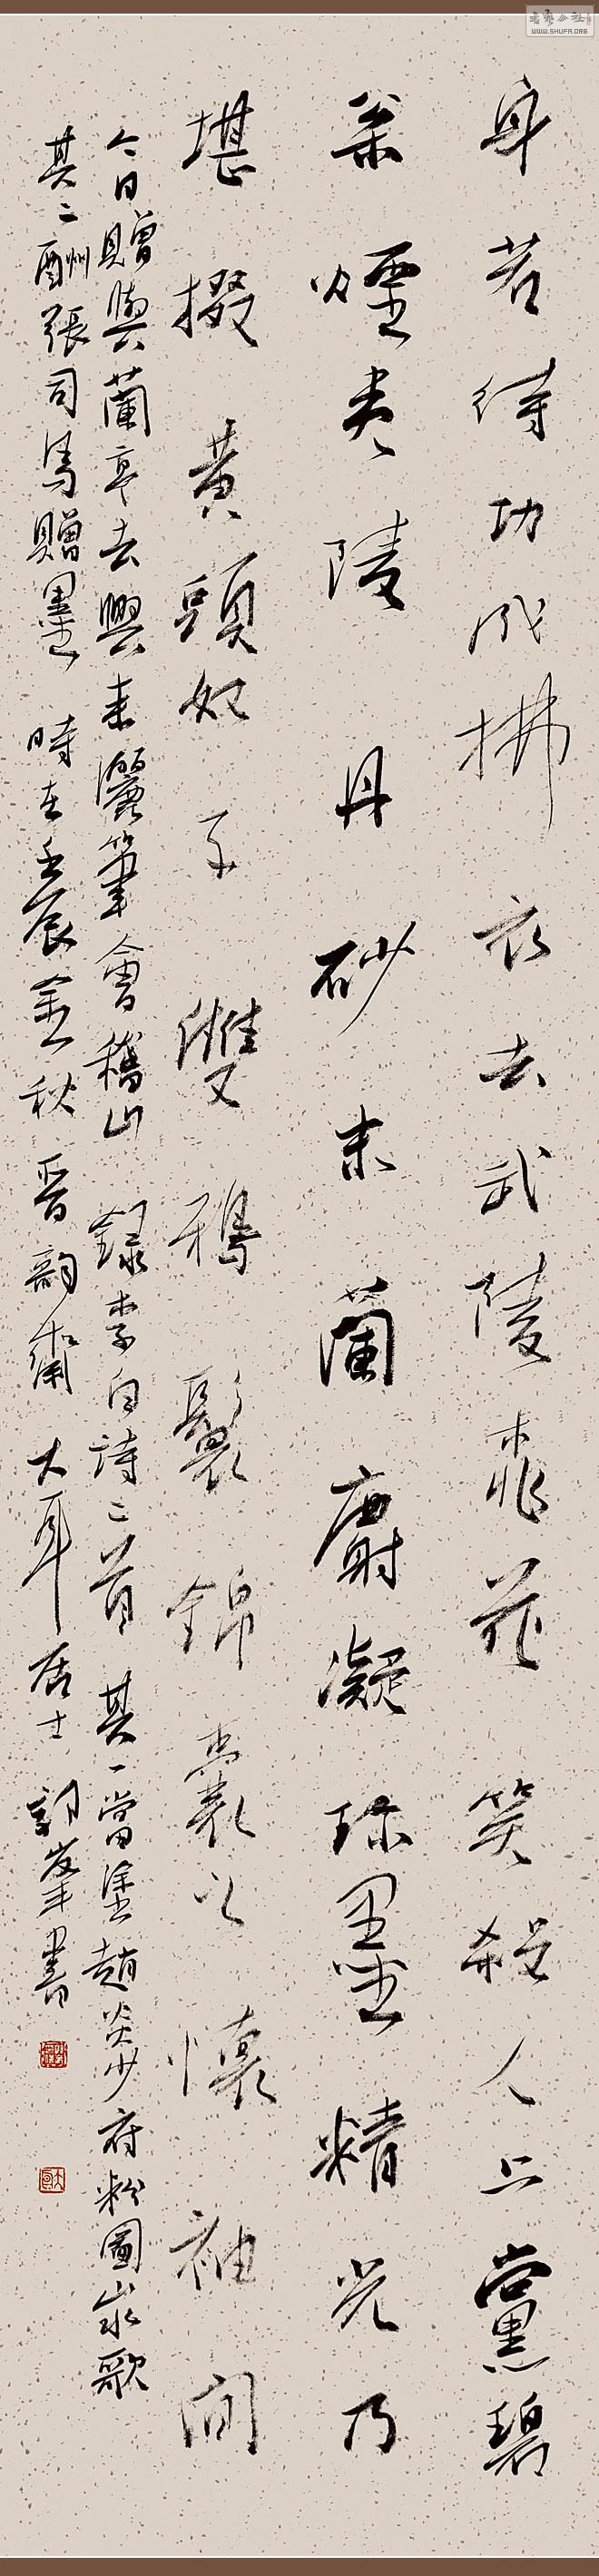 身若待功成拂衣去武陵桃花笑殺人上黨碧
枩煙夷陵丹砂末蘭麝凝珍墨精光乃
堪掇黄頭奴子雙鴉鬟錦囊之懷袖間
今日贈與蘭亭去興來灑筆會稽山 錄李白詩二首 其一當塗趙炎少府粉圖山水歌
其二酬張司馬贈墨 時在壬辰金秋晋韵齋大耳居士 峯書
书艺公社
WWW.SHUFA.ORG